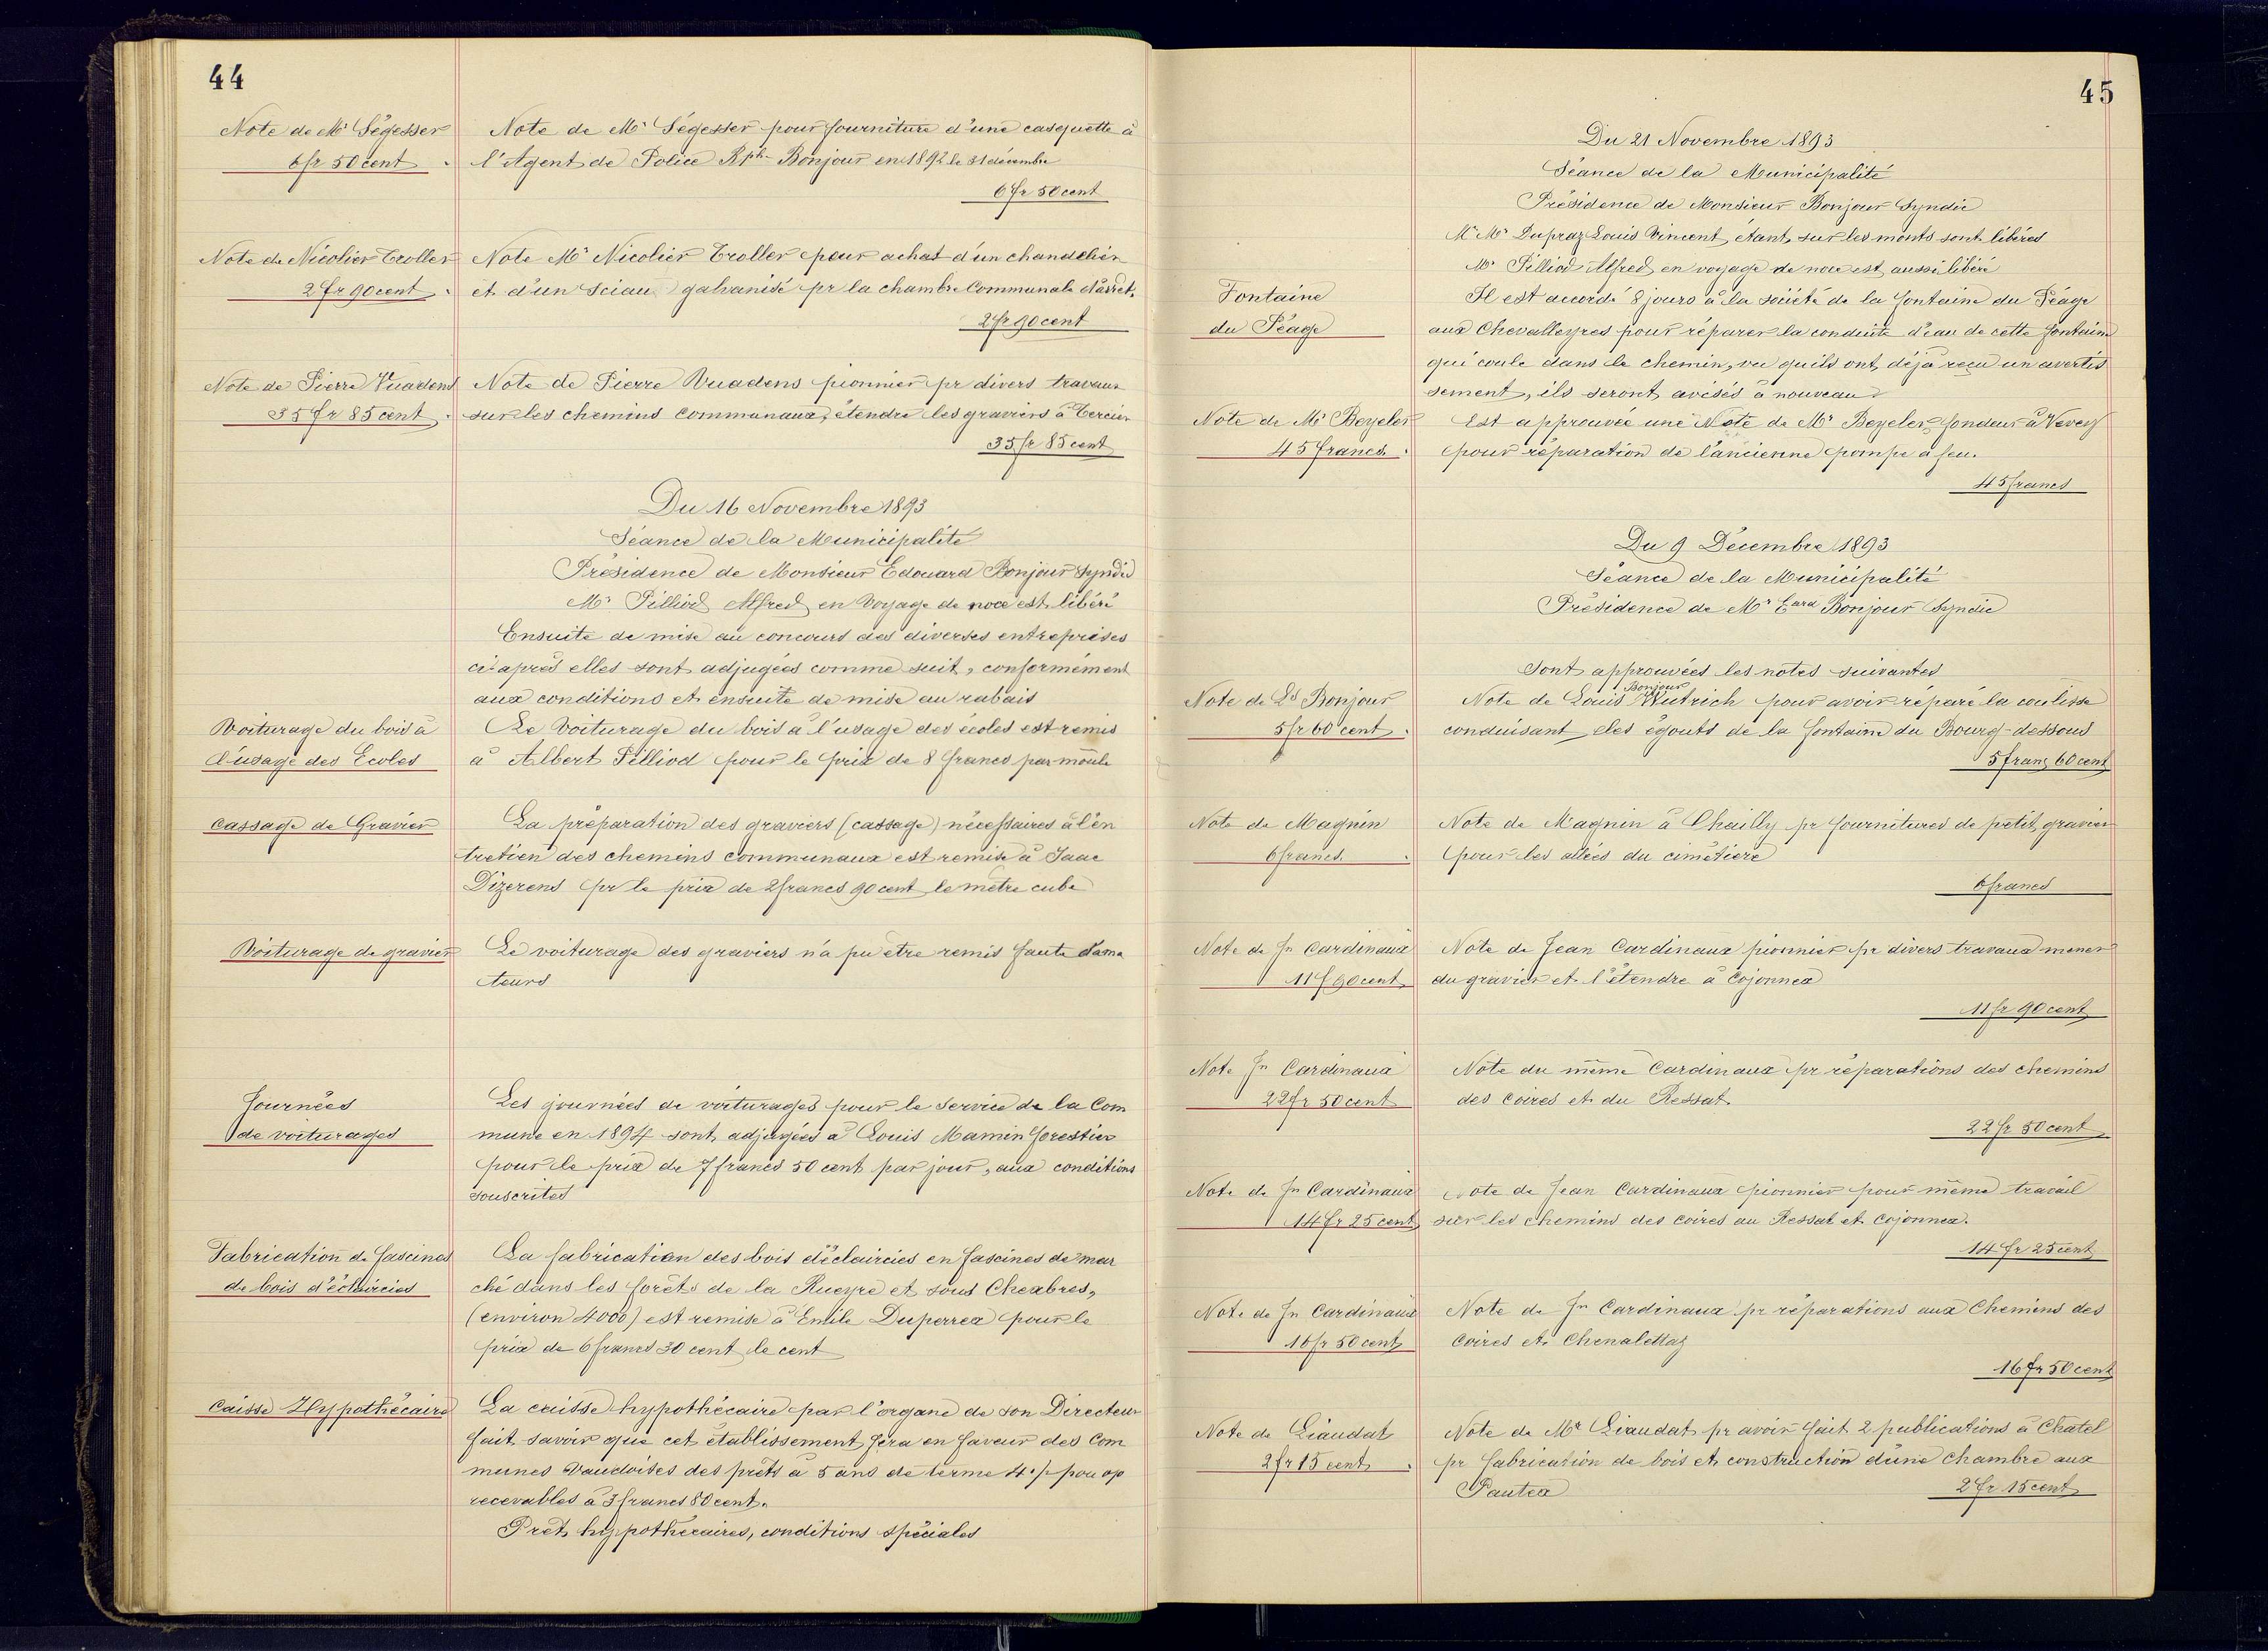 44
Note de Mr Ségesser
6 fr 50 cent
Note de Mr Ségesser pour fourniture d'une casquette à
l'Agent de Police Rph Bonjour en 1892 le 31 décembre
6 fr 50 cent
Note de Nicolier Troller
2 fr 90 cent
Note Mr Nicolier Troller pour achat d'un chandelier
et d'un sciau galvanisé pr la chambre Communale d'arrêt.
2 fr 90 cent
Note de Pierre Vuadens
35 fr 85 cent
Note de Pierre Vuadens pionnier pr divers travaux
sur les chemins communaux, étendre les graviers à Tercier
35 fr 85 cent
Du 16 Novembre 1893
Séance de la Municipalité
Présidence de Monsieur Edouard Bonjour Syndic
Mr Pilliod Alfred en voyage de noce est libéré
Ensuite de mise au concours des diverses entreprises
ci-après elles sont adjugées comme suit, conformément
aux conditions et ensuite de mise au rabais
Voiturage du bois à
l'usage des Ecoles
Le voiturage du bois à l'usage des écoles est remis
à Albert Pilliod pour le prix de 8 francs par moule
Cassage de Gravier
La préparation des graviers (cassage) nécessaires à l'en
tretien des chemins communaux est remise à Isaac
Dizerens pr le prix de 2 francs 90 cent le mètre cube
Voiturage de gravier
Le voiturage des graviers n'a pu être remis faute d'ama
teurs
Journées
de voiturages
Les journées de voiturages pour le service de la Com
mune en 1894 sont adjugées à Louis Mamin forestier
pour le prix de 7 francs 50 cent par jour, aux conditions
souscrites
Fabrication de fascines
de bois d'éclaircies
La fabrication des bois d'éclaircies en fascines de mar
ché dans les forêts de la Rueyre et sous Chexbres,
(environ 4000) est remise à Emile Duperrex pour le
prix de 6 francs 30 cent le cent
Caisse Hypothécaire
La caisse hypothécaire par l'organe de son Directeur
fait savoir que cet établissement fera en faveur des Com
munes Vaudoises des prêts à 5 ans de terme 4 %
recevables à 3 francs 80 cent.
Prêts hypothécaires, conditions spéciales
45
Du 21 Novembre 1893
Séance de la Municipalité
Présidence de Monsieur Bonjour Syndic
Mr Mr Dupraz Louis Vincent étant sur les monts sont libérés
Mr Pilliod Alfred en voyage de noce est aussi libéré
Fontaine
du Péage
Il est accordé 8 jours à la société de la fontaine du Péage
aux Chevalleyres pour réparer la conduite d'eau de cette fontaine
qui coule dans le chemin, vu qu'ils ont déjà reçu un avertis
sement, ils seront avisés à nouveau
Note de Mr Beyeler
45 francs.
Est approuvée une Note de Mr Beyeler fondeur à Vevey
pour réparation de l'ancienne pompe à feu.
45 francs
Du 9 Décembre 1893
Séance de la Municipalité
Présidence de Mr Eard Bonjour Syndic
Sont approuvées les notes suivantes
Note de Ls Bonjour
5 fr 60 cent
Bonjour
Note de Louis Wutrich pour avoir réparé la coulisse
conduisant les égouts de la fontaine du Bourg-dessous
5 franç 60 cent
Note de Magnin
6 francs.
Note de Magnin à Chailly pr fournitures de petit gravier
pour les allées du cimetière
6 francs
Note de Jn Cardinaux
11 f 90 cent
Note de Jean Cardinaux pionnier pr divers travaux mener
du gravier et l'étendre à Cojonnex
11 fr 90 cent
Note Jn Cardinaux
22 fr 50 cent
Note du même Cardinaux pr réparations des chemins
des Coires et du Ressat.
22 fr 50 cent
Note de Jn Cardinaux
14 fr 25 cent
Note de Jean Cardinaux pionnier pour même travail
sur les chemins des Coires au Ressat et Cojonnex.
14 fr 25 cent
Note de Jn Cardinaux
16 fr 50 cent
Note de Jn Cardinaux pr réparations aux Chemins des
Coires et Chenalettaz
16 fr 50 cent
Note de Liaudat
2 fr 15 cent
Note de Mr Liaudat pr avoir fait 2 publications à Chatel
pr fabrication de bois et construction d'une chambre aux
Pautex
2 fr 15 cent